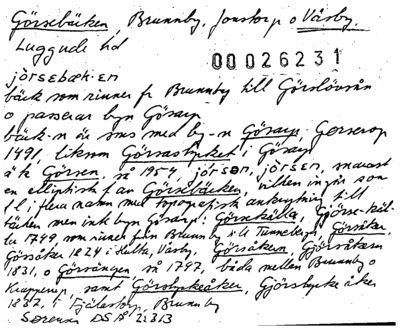 Görsebäcken, Brunnby, Jonstorp o Väsby,
Luggude hd
00026231
jörsebæk·en
bäck som rinner fr Brunnby till Görslövsån
o passerar byn Görarp
bäck-n är sms med by-n Görarp: Gerserop
1491, liksom Görsastycket i Görarp
Görsen, nå 1954, jörsən, jörsen, snarast
en elliptisk f av Görsebäcken, vilken ingår som
fl i flera namn med topografisk anknytning till
bäcken men ink byn Görarp: Görsekälla, Gjörse-käl-
la 1749, som rinner från Brunnby till Tunneberga, Görsåker,
Görsåker 1824 i Kulla, Väsby, Görsåkern, Gjörsåkern
1831, o Görsängen, nå 1797, båda mellan Brunnby o
Krapperup samt Görstyckeåker, Gjörstycke åker
1837, i Fjälastorp, Brunnby
Sörensen DS 18, 2:313